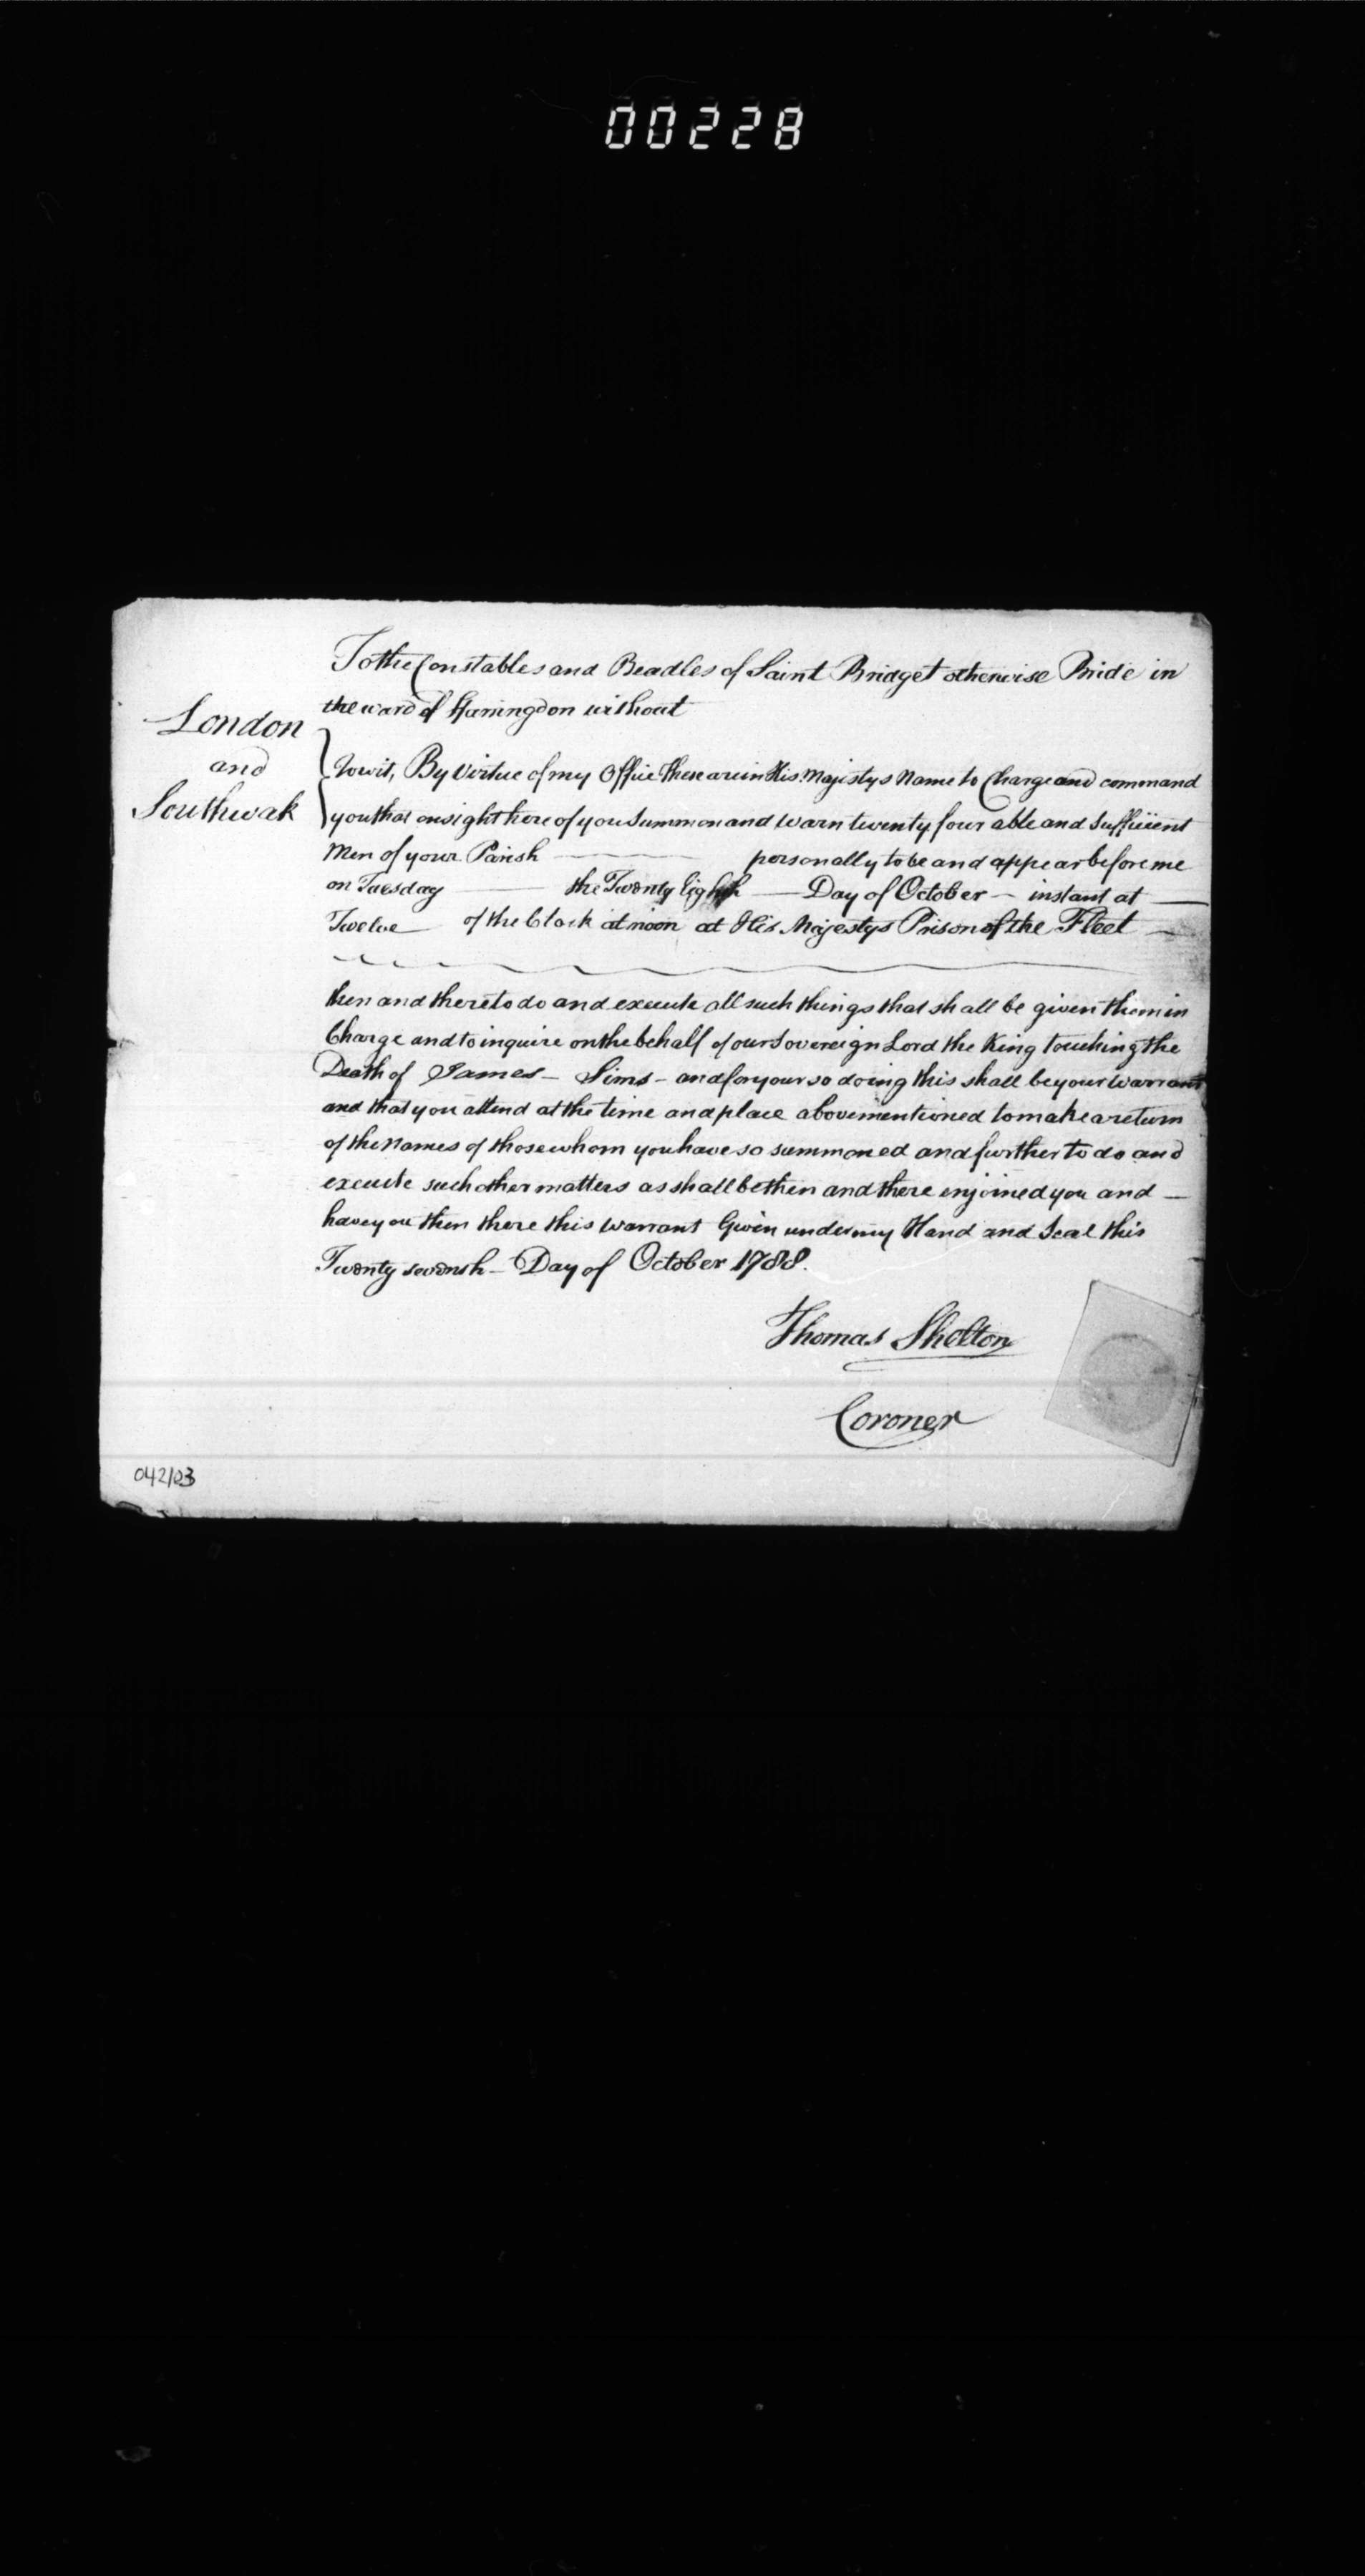 00228
To the Constables and Beadles of Saint Bridget otherwise Bride in
the ward of Farringdon without
London
and
Southwak
Towit, By Virtue of my Office These are in His Majestys Name to Charge and command
you that on sight here of you Summon and Warn twenty four able and Sufficient
Men of your Parish personally to be and appear before me
on Tuesday the Twenty Eighth Day of October instant at
Twelve of the Clock at noon at His Majestys Prison of the Fleet
then and there to do and execute all such things that shall be given them in
Charge and to inquire on the behalf of our Sovereign Lord the King touching the
Death of James Sims and for your so doing this shall be your Warrant
and that you attend at the time and place abovementioned to make a return
of the Names of those whom you have so summoned and further to do and
execute such other matters as shall be then and there enjoined you and
have you then there this Warrant Given under my Hand and Seal this
Twenty seventh Day of October 1788.
Thomas Shelton
Coroner
042/03